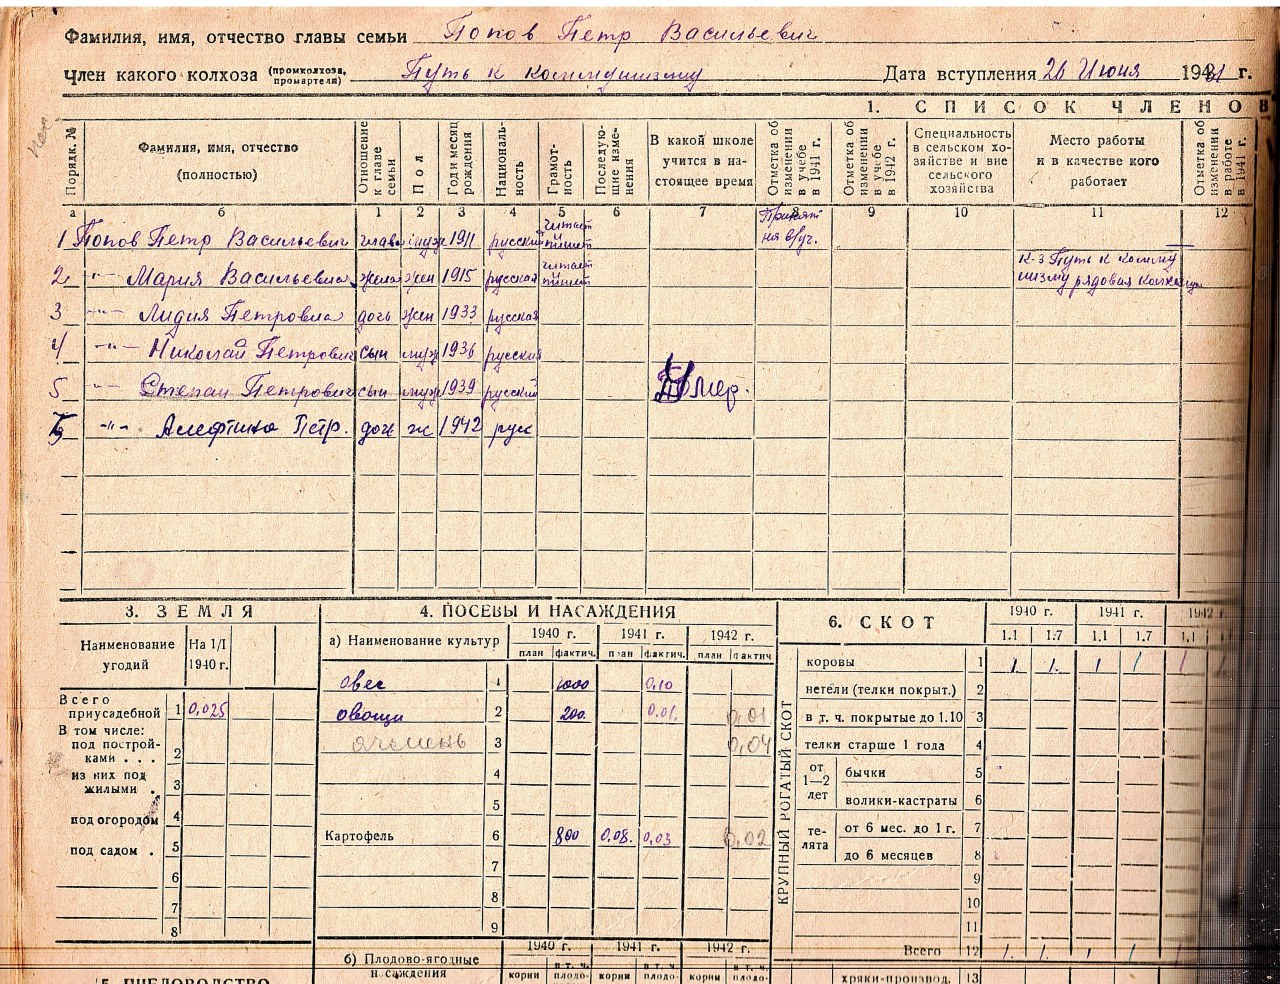 Фамилия, имя, отчество главы семьи Попов Петр Васильевич
Член какого колхоза (промколхоза, промартели) Путь к коммунизму Дата вступления 26 Июня 1931 г.
1. СПИСОК ЧЛЕНОВ
Порядк. № Фамилия, имя, отчество (полностью) Отношение к главе семьи Пол Год и месяц рождения Национальность Грамотность Последующие изменения В какой школе учится в настоящее время Отметка об изменении в учебе в 1941 г. Отметка об изменении в учебе в 1942 г. Специальность в сельском хозяйстве и вне сельского хозяйства Место работы и в качестве кого работает Отметка об изменении в работе в 1941 г.
а б 1 2 3 4 5 6 7 8 9 10 11 12
1 Попов Петр Васильевич глава муж 1911 русский читает пишет Принят на в/уч.
2 -"- Мария Васильевна жена жен 1915 русская читает пишет к-з Путь к коммунизму рядовая колхозница
3 -"- Лидия Петровна дочь жен 1933 русская
4 -"- Николай Петрович сын муж 1936 русский
5 -"- Степан Петрович сын муж 1939 русский Помер.
5 -"- Алефтина Петр. дочь ж 1942 русс
3. ЗЕМЛЯ
Наименование угодий На 1/I 1940 г.
Всего приусадебной 1 0,025
В том числе:
под постройками . . . 2
из них под жилыми . 3
под огородом 4
под садом . 5
6
7
8
4. ПОСЕВЫ И НАСАЖДЕНИЯ
а) Наименование культур 1940 г. 1941 г. 1942 г.
план фактич. план фактич. план фактич.
овес 1 1000 0,10
овощи 2 200 0,01. 0,01
ячмень 3 0,04
4
5
Картофель 6 800 0,08. 0,03 0,02
7
8
9
б) Плодово-ягодные насаждения 1940 г. 1941 г. 1942 г.
корни в т. ч. плодо- корни в т. ч. плодо- корни в т. ч. плодо-
6. СКОТ 1940 г. 1941 г. 1942
1.1 1.7 1.1 1.7 1.1
КРУПНЫЙ РОГАТЫЙ СКОТ
коровы 1 1. 1. 1 1 1
нетели (телки покрыт.) 2
в т. ч. покрытые до 1.10 3
телки старше 1 года 4
от 1—2 лет бычки 5
волики-кастраты 6
телята от 6 мес. до 1 г. 7
до 6 месяцев 8
9
10
11
Всего 12 1. 1. 1 1
хряки-производ. 13
5. ПЧЕЛОВОДСТВО